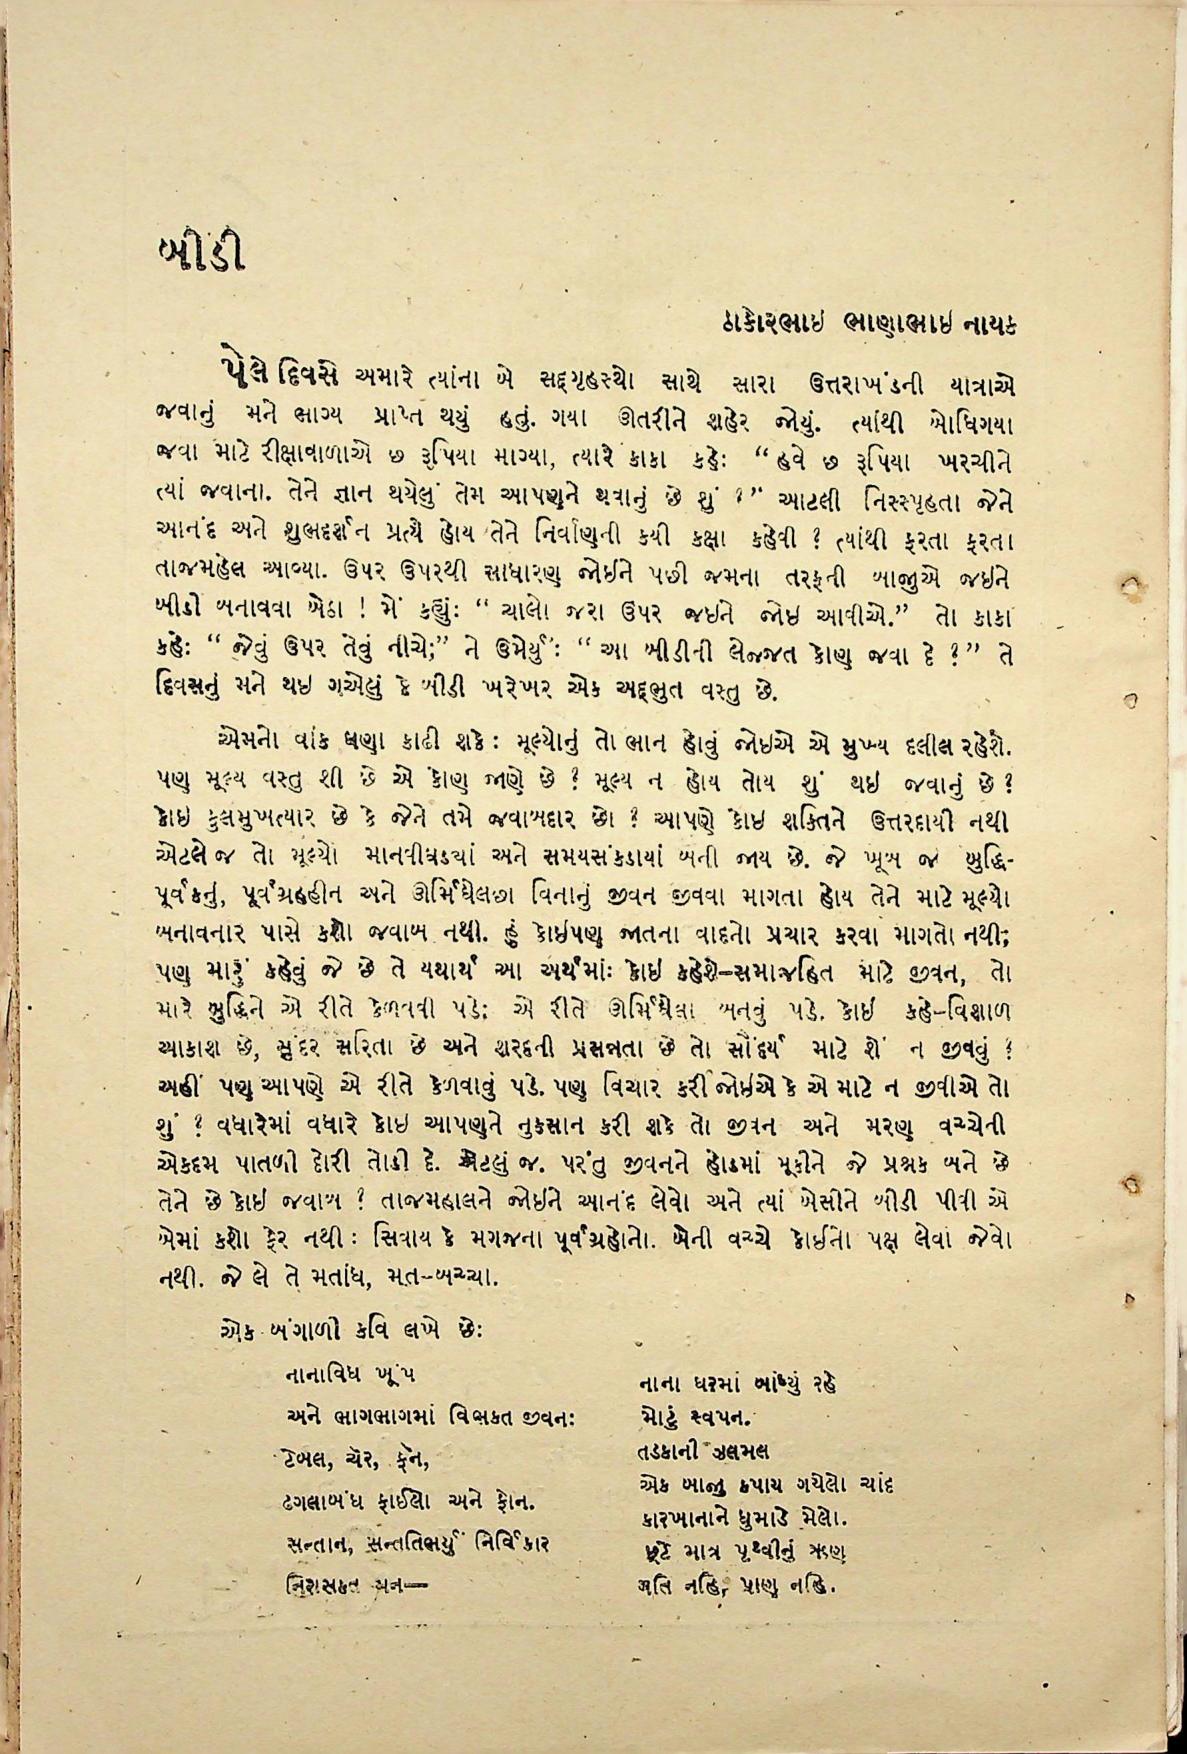 બીડી
ઠાકોરભાઇ ભાણાભાઇ નાયક
પેલે દિવસે અમારે ત્યાંના બે સદ્ગૃહસ્થો સાથે સારા ઉત્તરાખંડની યાત્રાએ
જવાનું મને ભાગ્ય પ્રાપ્ત થયું હતું. ગયા ઊતરીને શહેર જોયું. ત્યાંથી બોધિગયા
જવા માટે રીક્ષાવાળાએ છ રૂપિયા માગ્યા, ત્યારે કાકા કહેઃ “હવે છ રૂપિયા ખરચીને
ત્યાં જવાના. તેને જ્ઞાન થયેલું તેમ આપણને થવાનું છે શું ?” આટલી નિસ્સ્પૃહતા જેને
આનંદ અને શુભદર્શન પ્રત્યે હોય તેને નિર્વાણની કયી કક્ષા કહેવી ? ત્યાંથી ફરતા ફરતા
તાજમહેલ આવ્યા. ઉપર ઉપરથી સાધારણ જોઈને પછી જમના તરફની બાજુએ જઇને
બીડી બનાવવા બેઠા ! મેં કહ્યુંઃ “ ચાલો જરા ઉપર જઇને જોઇ આવીએ.” તો કાકા
કહેઃ “ જેવું ઉપર તેવું નીચે;” ને ઉમેર્યુંઃ “ આ બીડીની લેજ્જત કોણ જવા દે ?” તે
દિવસનું મને થઇ ગએલું કે બીડી ખરેખર એક અદ્ભુત વસ્તુ છે.
એમનો વાંક ઘણા કાઢી શકેઃ મૂલ્યોનું તો ભાન હોવું જોઇએ એ મુખ્ય દલીલ રહેશે.
પણ મૂલ્ય વસ્તુ શી છે એ કોણ જાણે છે ? મૂલ્ય ન હોય તોય શું થઇ જવાનું છે ?
કોઇ કુલમુખત્યાર છે કે જેને તમે જવાબદાર છો ? આપણે કોઇ શક્તિને ઉત્તરદાયી નથી
એટલે જ તો મૂલ્યો માનવીઘડ્યાં અને સમયસંકડાયાં બની જાય છે. જે ખૂબ જ બુદ્ધિ-
પૂર્વકનું, પૂર્વગ્રહહીન અને ઊર્મિઘેલછા વિનાનું જીવન જીવવા માગતા હોય તેને માટે મૂલ્યો
બનાવનાર પાસે કશો જવાબ નથી. હું કોઇપણ જાતના વાદનો પ્રચાર કરવા માગતો નથી;
પણ મારૂં કહેવું જે છે તે યથાર્થ આ અર્થમાંઃ કોઇ કહેશે–સમાજહિત માટે જીવન, તો
મારે બુદ્ધિને એ રીતે કેળવવી પડે; એ રીતે ઊર્મિઘેલા બનવું પડે. કોઇ કહે–વિશાળ
આકાશ છે, સુંદર સરિતા છે અને શરદની પ્રસન્નતા છે તો સૌંદર્ય માટે શેં ન જીવવું ?
અહીં પણ આપણે એ રીતે કેળવાવું પડે. પણ વિચાર કરી જોઇએ કે એ માટે ન જીવીએ તો
શું ? વધારેમાં વધારે કોઇ આપણને નુકસાન કરી શકે તો જીવન અને મરણ વચ્ચેની
એકદમ પાતળી દોરી તોડી દે. એટલું જ. પરંતુ જીવનને હોડમાં મૂકીને જે પ્રશ્નક બને છે
તેને છે કોઇ જવાબ ? તાજમહાલને જોઇને આનંદ લેવો અને ત્યાં બેસીને બીડી પીવી એ
બેમાં કશો ફેર નથીઃ સિવાય કે મગજના પૂર્વગ્રહોનો. બેની વચ્ચે કોઈનો પક્ષ લેવા જેવો
નથી. જે લે તે મતાંધ, મત–બચ્ચા.
એક બંગાળી કવિ લખે છેઃ
નાનાવિધ ખૂંપ
અને ભાગભાગમાં વિભક્ત જીવનઃ
ટેબલ, ચૅર, ફૅન,
ઢગલાબંધ ફાઈલો અને ફોન.
સન્તાન, સન્તતિભર્યું નિર્વિકાર
નિરાસક્ત મન—
નાના ઘરમાં બાંધ્યું રહે
મોટું સ્વપન.
તડકાની ઝલમલ
એક બાજુ કપાય ગયેલો ચાંદ
કારખાનાને ધુમાડે મેલો.
છૂટે માત્ર પૃથ્વીનું ઋણ
ગતિ નહિ, પ્રાણ નહિ.